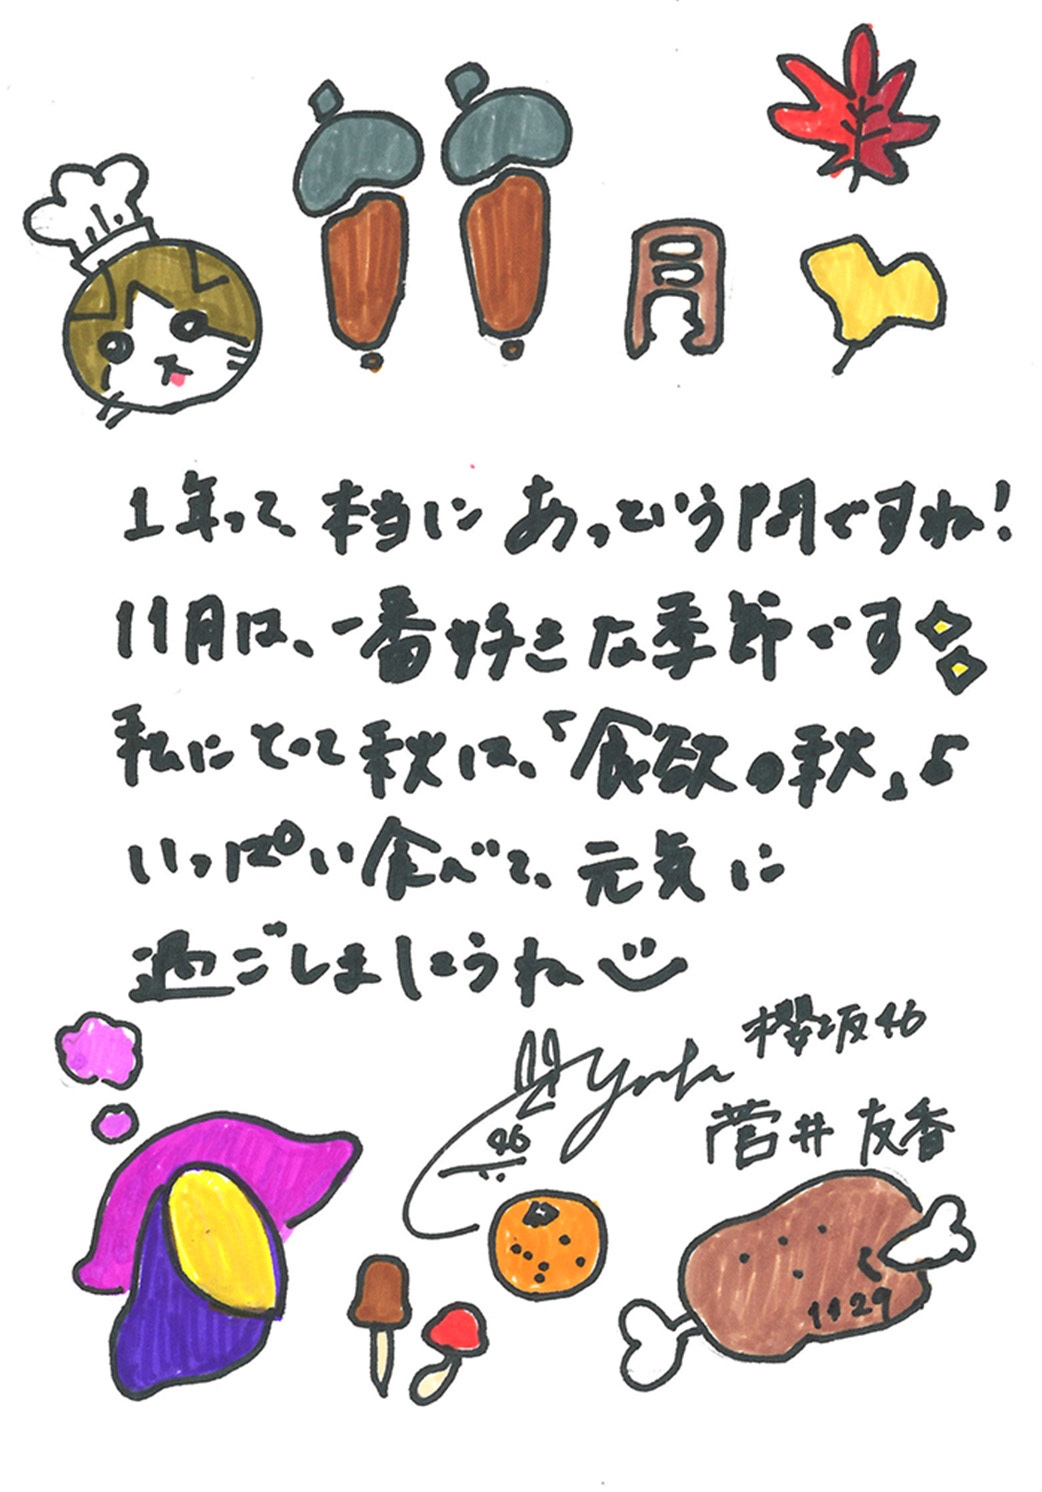 月
1年って、本当にあっという間ですね!
11月は、一番好きな季節です
私にとって秋は、「食欲の秋」♪
いっぱい食べて、元気に
過ごしましょうね
櫻坂46
菅井友香
46
1129